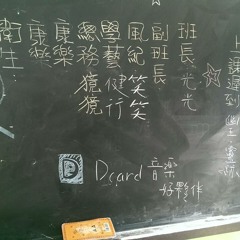 上課遲到
班長 光光
副班長
風紀 笑笑
學藝 健行
總務 獍獍
康樂
康樂
衛生
D
Dcard 音樂
好夥伴